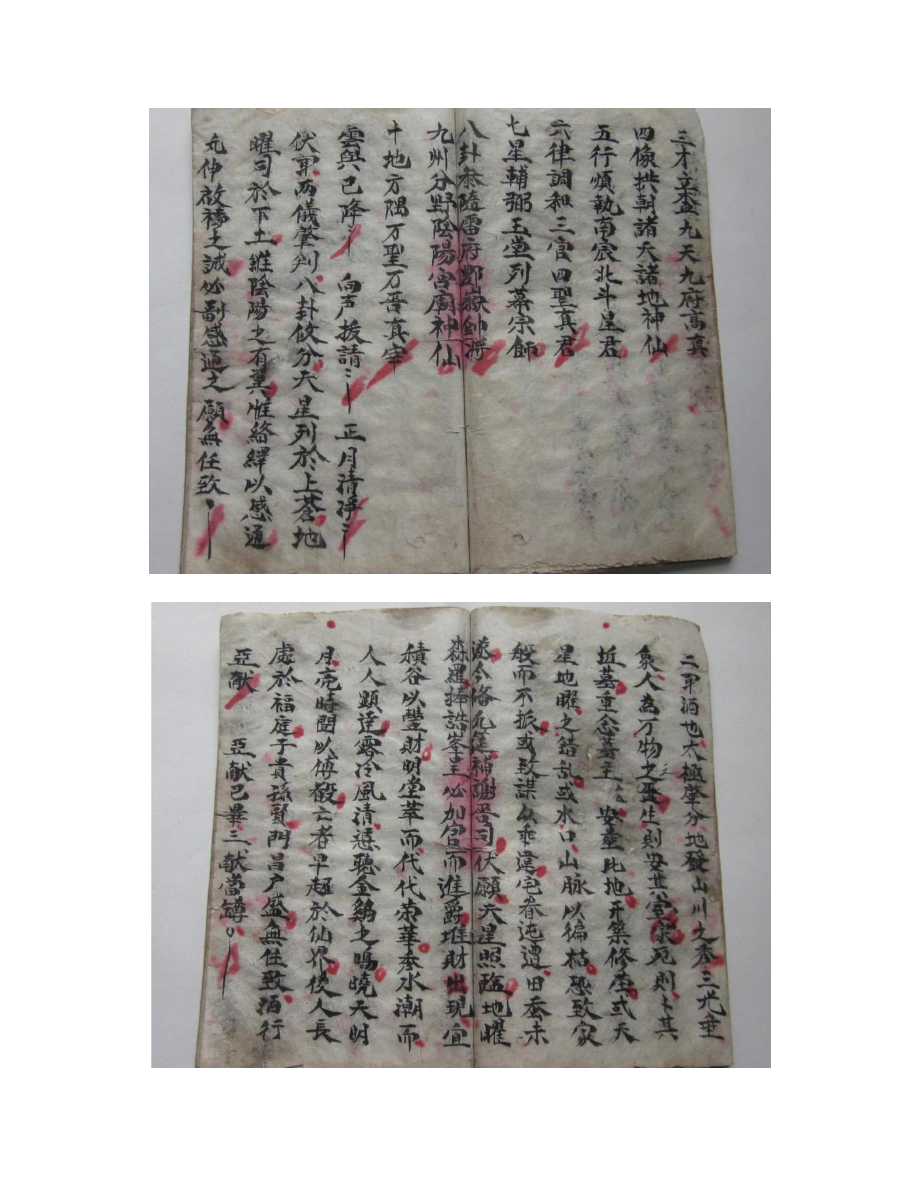 三才立極九天九府高真
四像拱朝諸天諸地神仙
五行順執南宸北斗星君
六律調和三官四聖真君
七星輔弼玉堂列幕宗師
八卦恭隨雷府酆嶽帥將
九州分野陰陽宮廟神仙
十地方隅万聖万吾真宰
雲輿已降〻 向声援請〻 正月清凈〻
伏聞両儀肇判八卦攸分天星列於上蒼地
曜司於下土雖陰陽之有異惟絡繹以感通
凡伸啟禱之誠必副感通之願無任致〻
二奠酒也太極肇分地發山川之秀三光垂
象人為万物之灵生則安其室家死則卜其
坵墓重念墓主 安塟此地开築修塋或天
星地曜之錯乱或水口山脉以徧枯恐致家
般而不振或致謀么乖違宅眷迍遭田蚕未
遂今俻凢筵補謝吾司伏願天星照臨地曜
森羅捧誥峯呈必加官而進爵堆財出現宜
積谷以豐財明堂萃而代代荣華秀水潮而
人人顕達露冷風清慿聽金鷄之鳴曉天明
月亮時聞以傅殺亡者早超於仙界後人長
處於福庭子貴孫賢門昌户盛無任致酒行
亞献 亞献已畢三献當罇〻